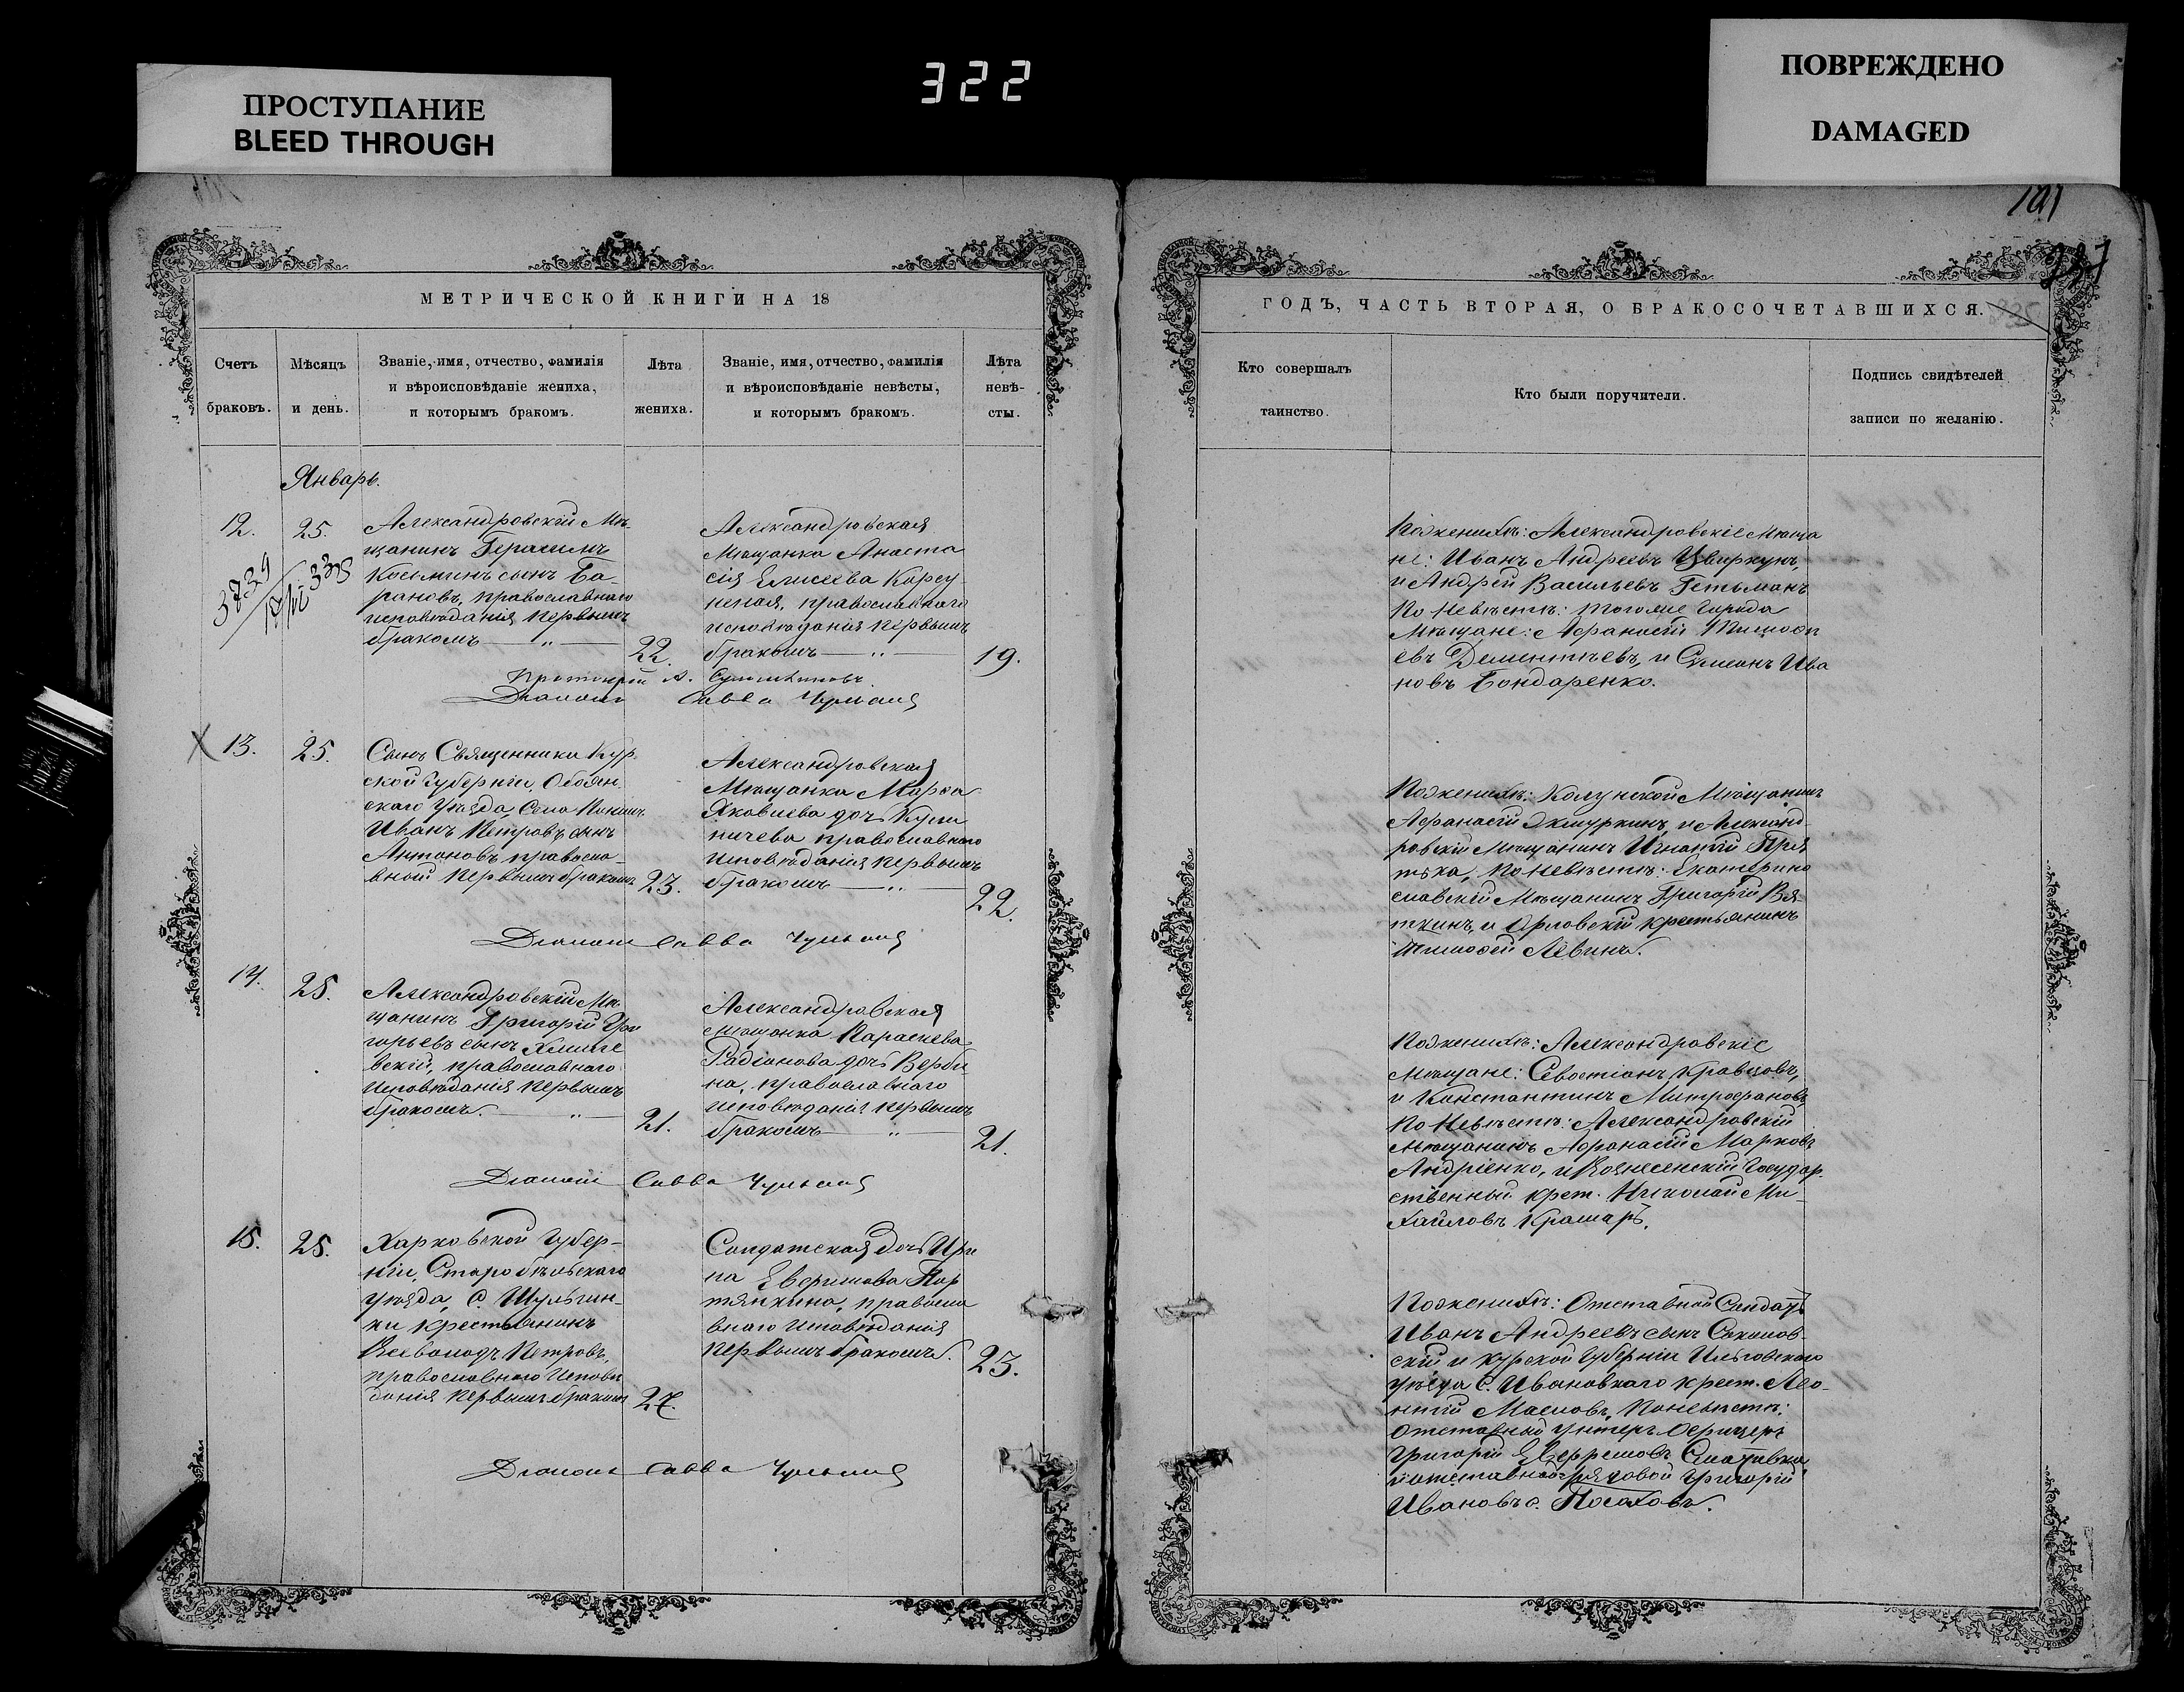 ПРОСТУПАНИЕ
BLEED THROUGH
322
ПОВРЕЖДЕНО
DAMAGED
МЕТРИЧЕСКОЙ КНИГИ НА 18
Счетъ
браковъ.
Мѣсяцъ
и день.
Званіе, имя, отчество, фамилія
и вѣроисповѣданіе жениха,
и которымъ бракомъ.
Лѣта
жениха.
Званіе, имя, отчество, фамилія
и вѣроисповѣданіе невѣсты,
и которымъ бракомъ.
Лѣта
невѣ-
сты.
Январь.
12.
25.
Александровскій Мѣ-
щанинъ Герасимъ
Косьминъ сынъ Ба-
рановъ, православнаго
исповѣданія первымъ
бракомъ — „ —
22.
Александровская
Мѣщанка Анаста
сія Елисеева Корсу
нская, православнаго
исповѣданія первымъ
бракомъ — „ —
19.
Протоіерей А.
Діаконъ Савва
13.
25.
Сынъ Священника Кур-
ской Губерніи, Обоян-
скаго Уѣзда, Села
Иванъ Петровъ сынъ
Антоновъ, правосла-
вной первымъ бракомъ
23.
Александровская
Мѣщанка Марѳа
Яковлева дочь Кули
ничева православнаго
исповѣданія первымъ
бракомъ — „ —
22.
Діаконъ Савва
14.
25.
Александровскій Мѣ-
щанинъ Григорій Гри
горьевъ сынъ
вскій, православнаго
исповѣданія первымъ
бракомъ. — „ —
21.
Александровская
Мѣщанка Параскева
Радіонова дочь Верби-
на, православнаго
исповѣданія первымъ
бракомъ — „ —
21.
Діаконъ Савва
15.
25.
Харковской Губер-
ніи, Старобѣльскаго
уѣзда, С. Шульгин-
ки крестьянинъ
Всеволодъ Петровъ,
православнаго Исповѣ
данія первымъ бракомъ
27.
Солдатская дочь Ири
на Евфимова Пор
тянкина, правосла
внаго исповѣданія
первымъ бракомъ.
23.
Діаконъ Савва
ГОДЪ, ЧАСТЬ ВТОРАЯ, О БРАКОСОЧЕТАВШИХСЯ.
Кто совершалъ
таинство.
Кто были поручители.
Подпись свидѣтелей
записи по желанію.
По женихѣ: Александровскіе Мѣща
не: Иванъ Андреевъ Цвиркунъ,
и Андрей Васильевъ Гетьманъ
По невѣстѣ: того же города
Мѣщане: Афанасій Тимоѳе
евъ Дементьевъ, и Симеонъ Ива
новъ Бондаренко.
По женихѣ: Мѣщанинъ
Афанасій Якшуркинъ, и Александ-
ровскій Мѣщанинъ Игнатій Пря
тка, По невѣстѣ: Екатерино
славскій Мѣщанинъ Григорій Вя-
ткинъ, и Орловскій крестьянинъ
Тимоѳей Левинъ.
По женихѣ: Александровскіе
Мѣщане: Севостіанъ Кравцовъ,
и Константинъ Митрофановъ
По невѣстѣ: Александровскій
Мѣщанинъ Афанасій Марковъ
Андріенко, и Вознесенскій Государ-
ственный крет. Николай Ми-
хайловъ Крамарь.
По женихѣ: Отставной Солдатъ
Иванъ Андреевъ сынъ Соколов-
скій и Курской Губерніи Льговскаго
уѣзда С. Ивановскаго крест. Лео-
нтій Масловъ, По невѣстѣ:
отставной унтеръ Офицеръ
Григорій
и отставной рядовой Григорій
Ивановъ с. Посаховъ.